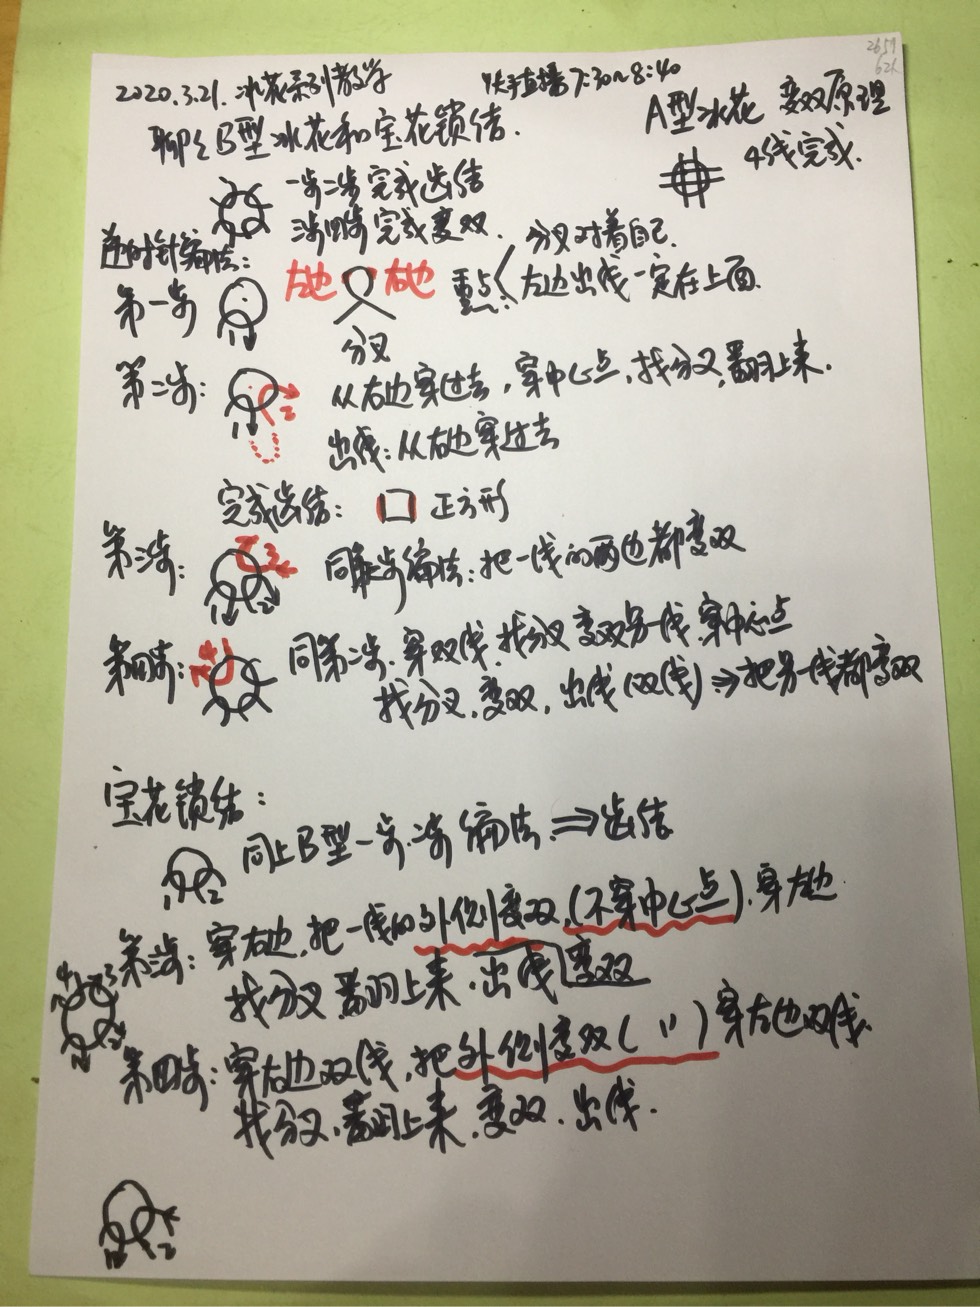 2659
621
2020.3.21.冰花系列教学 快手直播7:30~8:40
聊聊B型冰花和宝花锁结.
A型冰花 变双原理
4线完成.
一步二步完成齿结
三步四步完成变双.
逆时针编法:
分叉对着自己.
第一步 左边 右边 重点: 左边出线一定在上面.
1
分叉
第二步: 从右边穿过去,穿中心点,找分叉,翻上来.
1 2
出线:从右边穿过去
完成齿结: 正方形
第三步: 同第二步编法:把一线的两边都变双
3
1 2
第四步: 同第二步.穿双线,找分叉变双另一线.穿中心点
4
找分叉,变双,出线(双线)⇒把另一线都变双
宝花锁结:
同上B型一步.二步编法⇒齿结
1 2
第三步:穿右边,把一线的外侧变双,(不穿中心点).穿左边
找分叉翻上来.出线变双
4 3
1 2
第四步:穿右边双线,把外侧变双( 〃 )穿左边双线.
找分叉.翻上来.变双.出线.
1 2